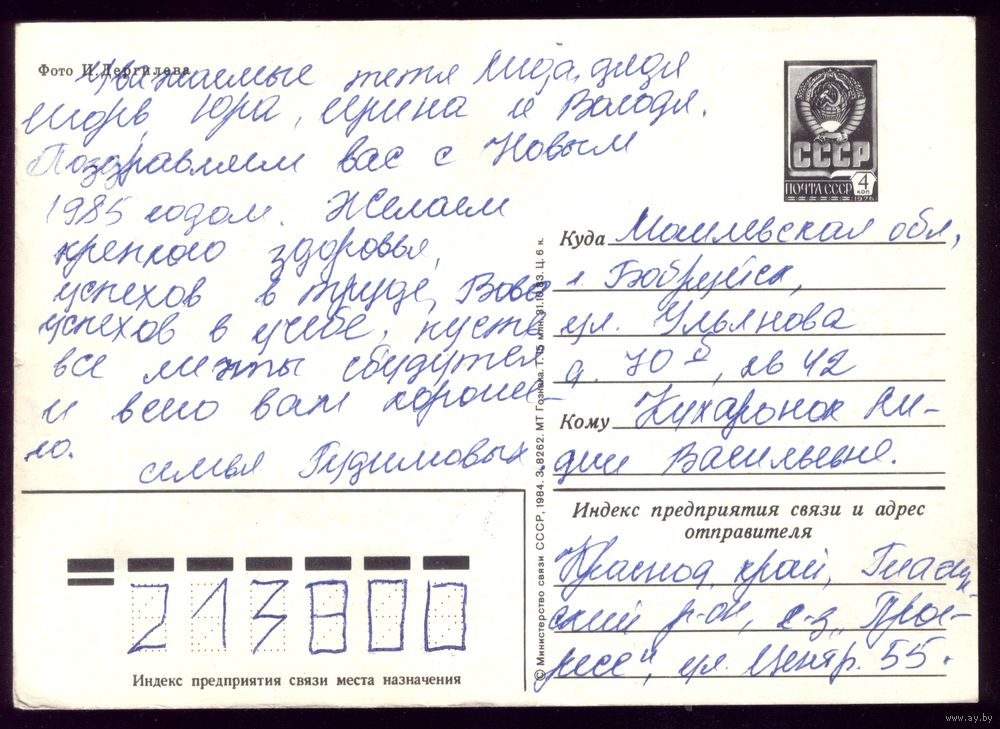 Фото И. Дергилева
Уважаемые тетя Лида, дядя
Игорь, Юра, Ирина и Володя.
Поздравляем вас с Новым
1985 годом. Желаем
крепкого здоровья,
успехов в труде, Вове
успехов в учебе, пусть
все мечты сбудутся
и всего вам хороше-
го.
семья Гудимовых
СССР
ПОЧТА СССР
4
КОП
1976
Куда Могилевская обл,
г. Бобруйск,
ул. Ульянова
д. 70 б, кв 42
Кому Кухаронок Ли-
дии Васильевне.
Индекс предприятия связи и адрес
отправителя
Краснод. край,
ский р-он, с-з „Прог-
ресс“, ул. Центр. 55.
213800
Индекс предприятия связи места назначения
© Министерство связи СССР, 1984. З. 8262. МТ Гознака. Т. 15 млн. 31.10.83. Ц. 6 к.
www.ay.by